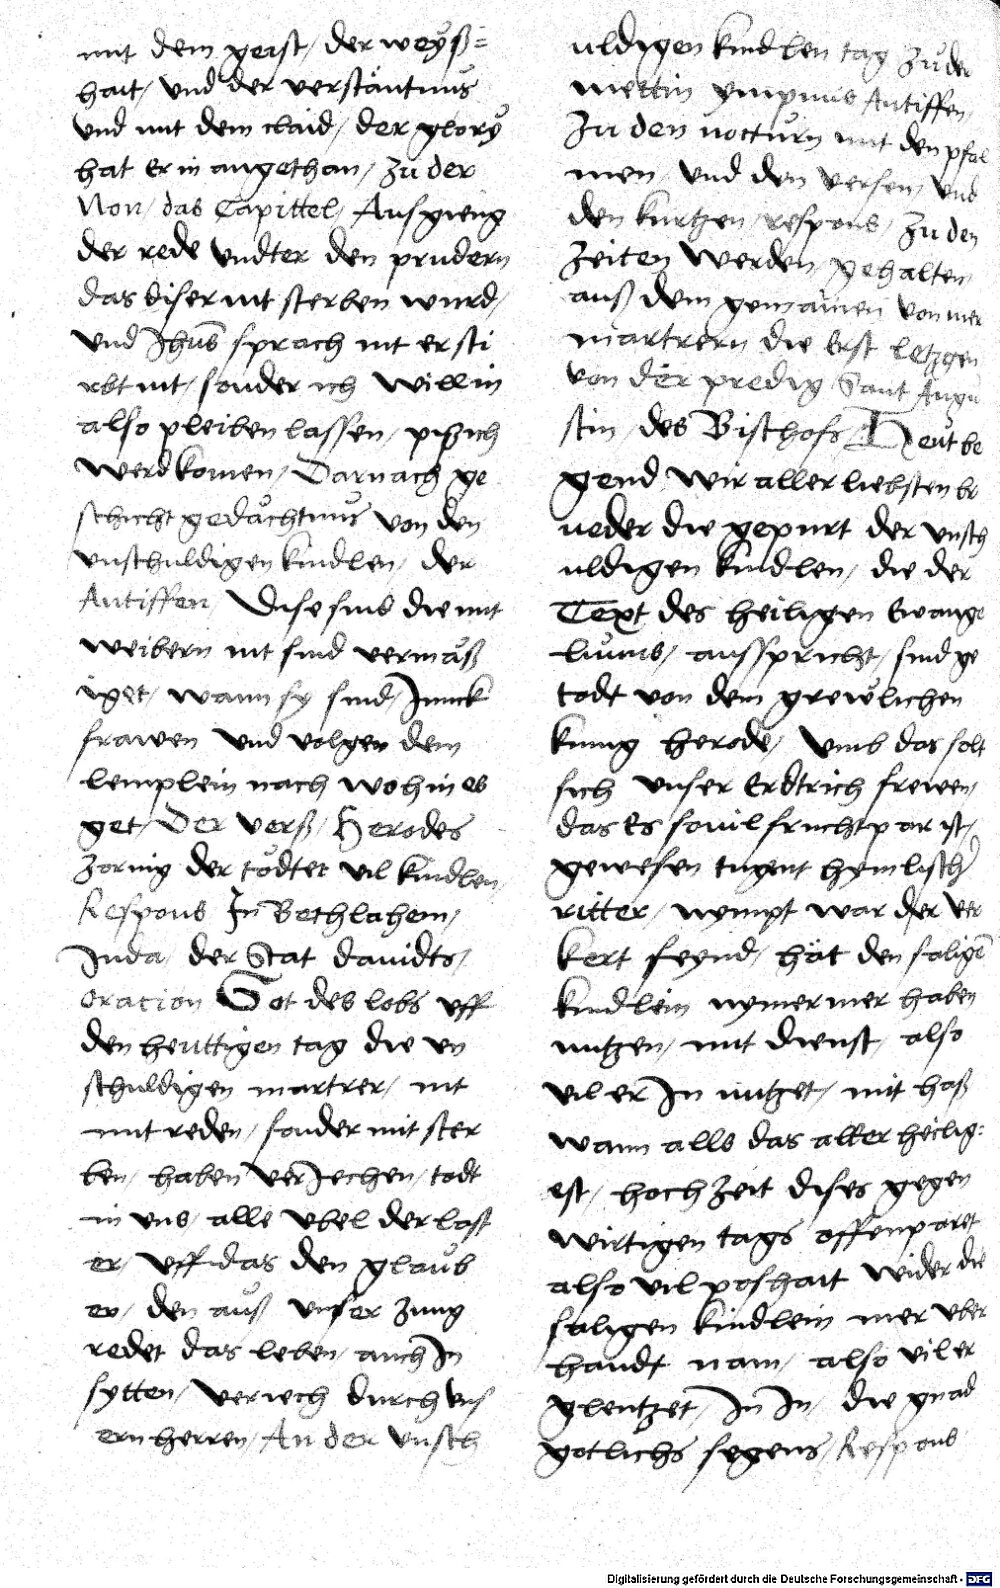 mit dem geist / der weyß=
hait / vnd der verstäntnus
vnd mit dem claid / der glory
hat Er in angethan / Zu der
Non / das Capittel / Ausgieng
der rede vndter den prudern
das diser nit sterben wurd /
vnd Jhus sprach nit er sti
rbt nit / sonder ich will in
also pleiben lassen / piß ich
werd komen / Darnach ge
schicht gedächtnus von den
vnschuldigen kindlen / der
Antiffen / Dise sind die mit
weibern nit sind vermäß
iget / wann sy sind / Junck
frawen vnd volgen dem
lemplein nach wohin es
get / Der verß / Herodes
zornig der tödtet vil kindlen
Respons In Bethlahem /
Juda / der Stat dauidts /
oracion Got des lobs vff
den heuttigen tag die vn
schuldigen martrer / nit
mit reden / sonder mit ster
ben / haben verJechen / todt
in vns / alle vbel der last
er / vff das den glaub
en / den auß vnser zung
redet das leben / auch In
sytten / veriech durch vns
ern herren / An der vnsch
uldigen kindlen tag zu der
mettin ympnus Antiffen /
Zu den nocturn mit den psal
men / vnd den versen / vnd
den kurtzen / respons / Zu den
Zeiten werden / gehalten
auß dem gemainen von mer
martrern die Erst letzgen
von der predig Sant Augu
stin / des Bischofs Heut be
gend wir aller liebsten br
ueder die gepurt der vnsch
uldigen kindlen / die der
Text des heiligen Ewange
liums / ausspricht / sind ge
todt von dem grewlichen
kunig herode / vmb das solt
sich vnser Erdtrich frewen /
das Es souil fruchtpar ist /
gewesen tugent hymlischer
ritter / nympt war der ver
kert feynd / hät den saligen
kindlein nymermer haben
nutzen / mit dienst / also
vil er In nutzet / mit haß
wann alls das aller heilig=
est / hochzeit dises gegen
wirtigen tags offenparet
also vil poshait wider die
saligen kindlein mer vber
handt nam / also vil er
glentzet / In In / die gnad
gotlichs segens / Respons
Digitalisierung gefördert durch die Deutsche Forschungsgemeinschaft - DFG